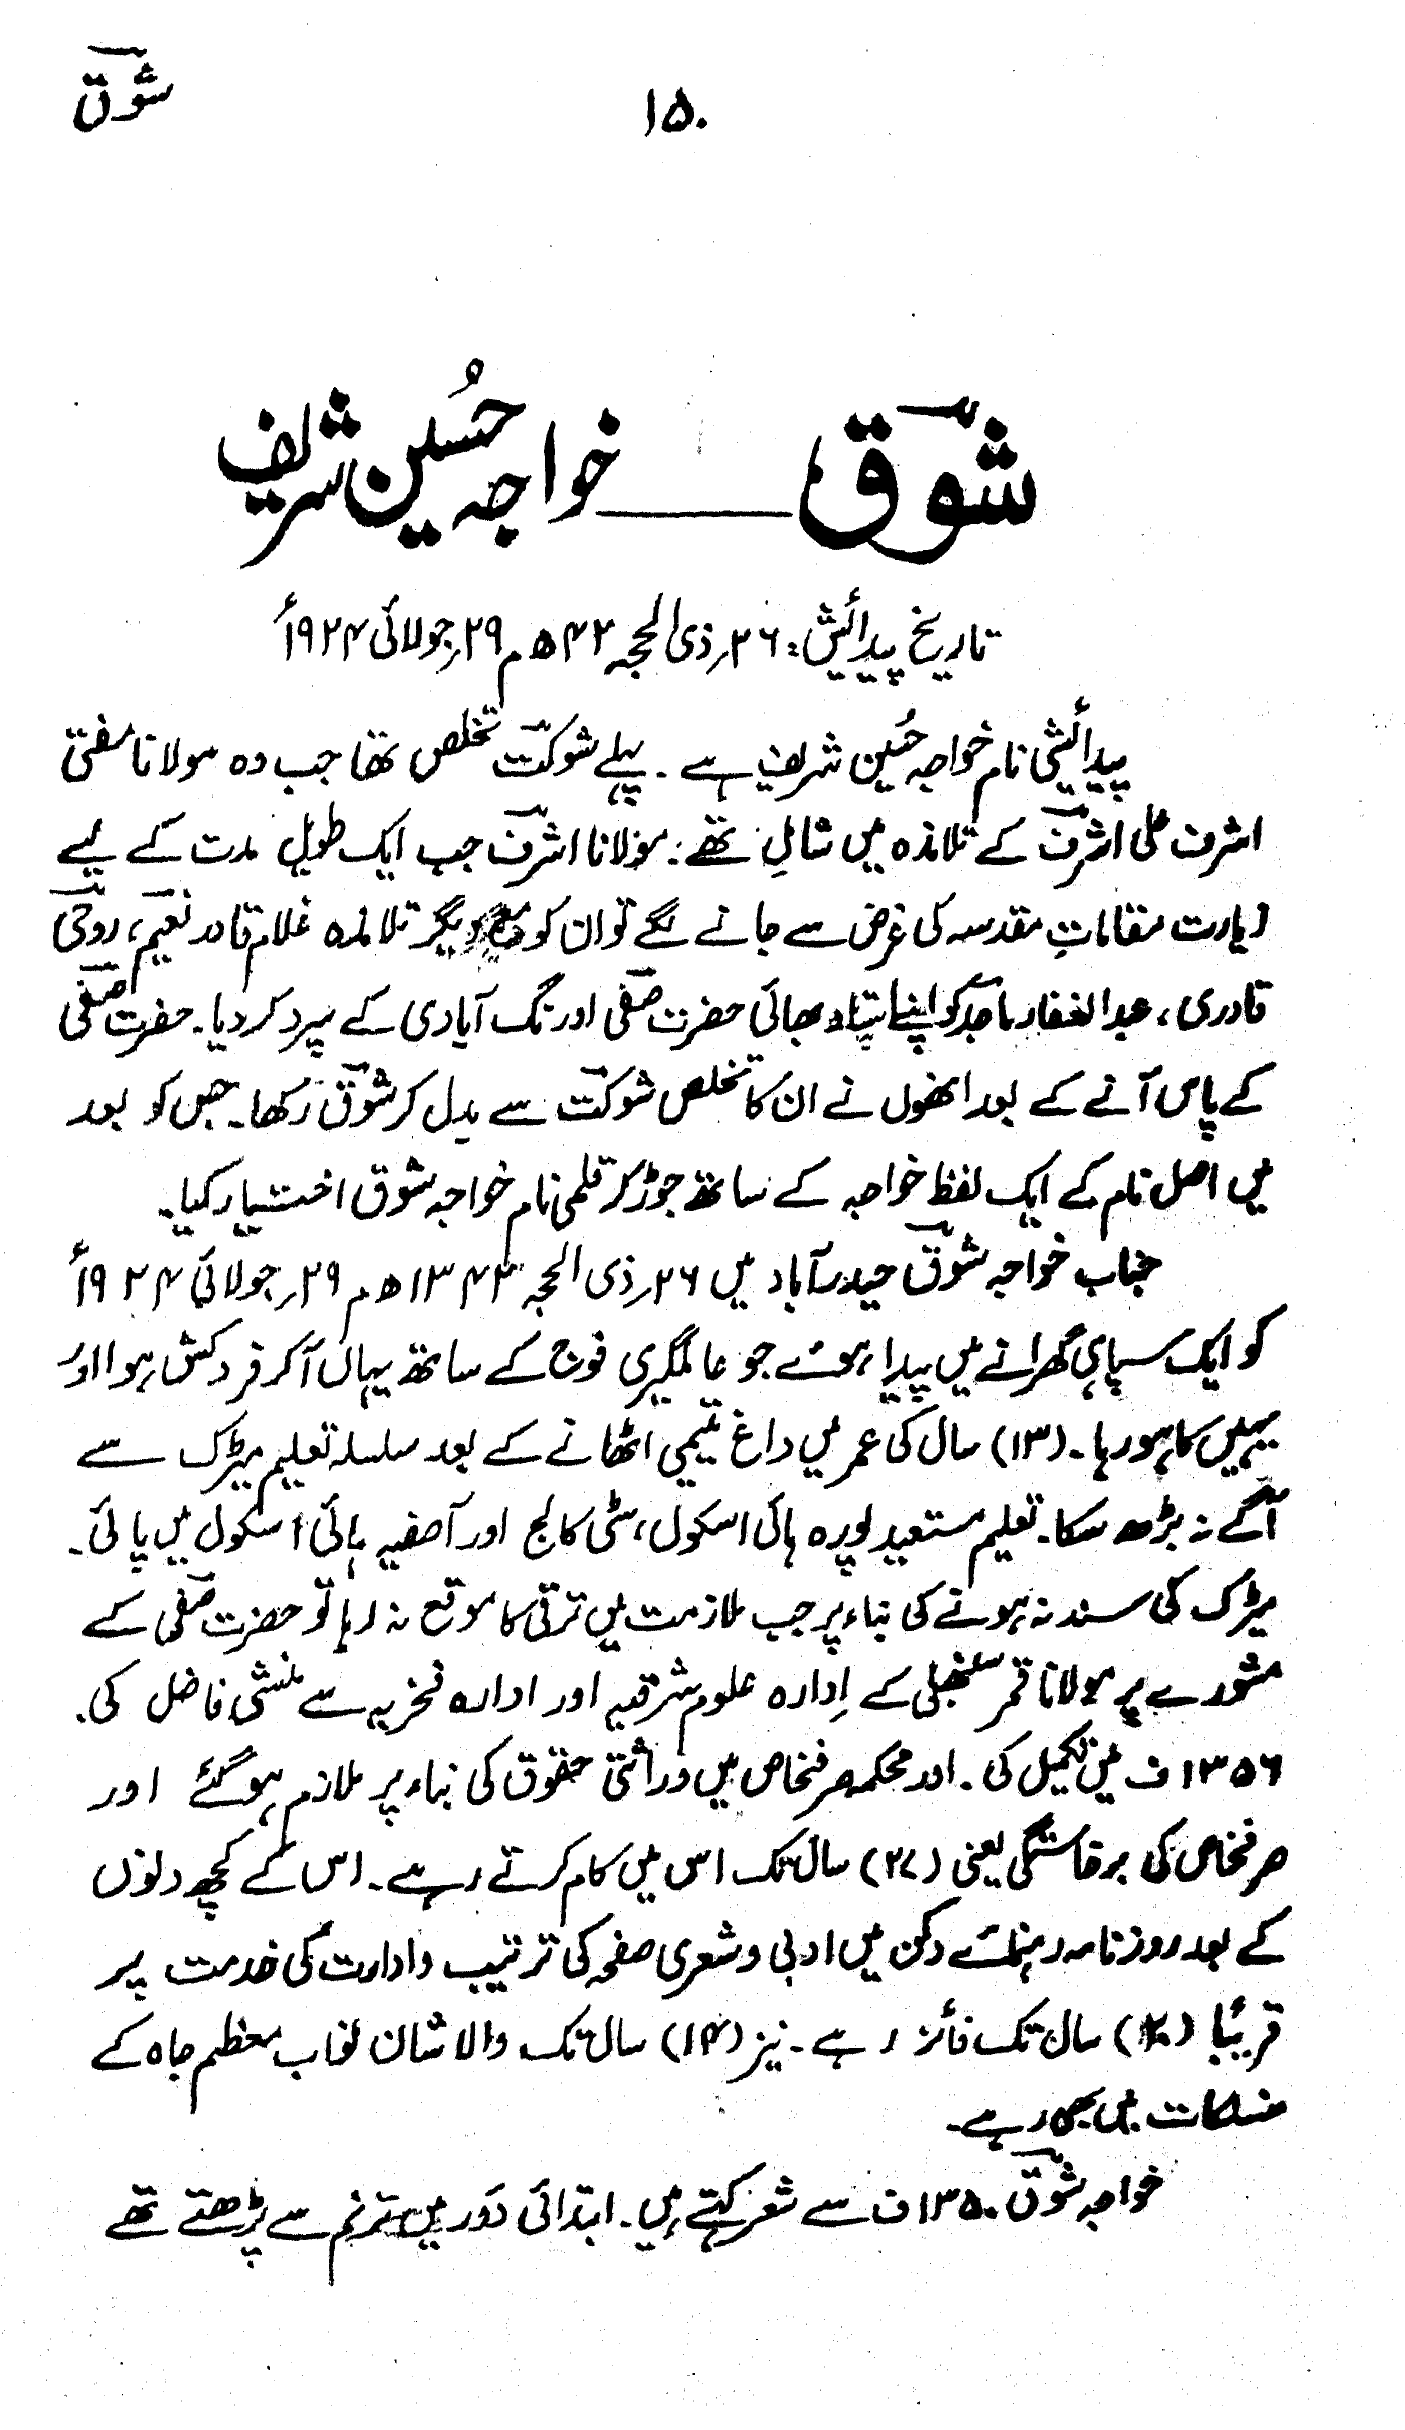 شوقؔ
۱۵۰
شوقؔ ــــ خواجہ حُسین شریف
تاریخ پیدائیش: ۲۶؍ ذی الحجہ ۴۲ھ م ۲۹؍ جولائی ۱۹۲۴ء
پیدائیشی نام خواجہ حُسین شریف ہے۔ پہلے شوکتؔ تخلص تھا جب وہ مولانا مفتی
اشرف علی اشرفؔ کے تلامذہ میں شامل تھے۔ مولانا اشرفؔ جب ایک طویل مدت کے لیے
زیارت مقاماتِ مقدسہ کی غرض سے جانے لگے تو ان کو مع دیگر تلامذہ غلام قادر نعیمؔ، روحیؔ
قادری، عبدالغفار ماجدؔ کو اپنے استاد بھائی حضرت صفیؔ اورنگ آبادی کے سپرد کر دیا۔ حضرت صفیؔ
کے پاس آنے کے بعد انھوں نے ان کا تخلص شوکتؔ سے بدل کر شوقؔ رکھا۔ جس کو بعد
میں اصل نام کے ایک لفظ خواجہ کے ساتھ جوڑ کر قلمی نام خواجہ شوق اختیار کیا۔
جناب خواجہ شوقؔ حیدرآباد میں ۲۶؍ ذی الحجہ ۱۳۴۲ھ م ۲۹؍ جولائی ۱۹۲۴ء
کو ایک سپاہی گھرانے میں پیدا ہوئے جو عالمگیری فوج کے ساتھ یہاں آکر فروکش ہوا اور
یہیں کا ہو رہا۔ (۱۳) سال کی عمر میں داغ یتیمی اٹھانے کے بعد سلسلہ تعلیم میٹرک سے
آگے نہ بڑھ سکا۔ تعلیم مستعید پورہ ہائی اسکول، سٹی کالج اور آصفیہ ہائی اسکول میں پائی۔
میٹرک کی سند نہ ہونے کی بناء پر جب ملازمت میں ترقی کا موقع نہ رہا تو حضرت صفیؔ کے
مشورے پر مولانا قمر سنبھلی کے اِدارہ علوم شرقیہ اور ادارہ فخریہ سے منشی فاضل کی۔
۱۳۵۶ ف میں تکمیل کی۔ اور محکمہ صرفخاص میں وراثتی حقوق کی بناء پر ملازم ہوگئے اور
صرفخاص کی برخاستگی یعنی (۲۷) سال تک اس میں کام کرتے رہے۔ اس کے کچھ دنوں
کے بعد روزنامہ رہنمائے دکن میں ادبی و شعری صفحہ کی ترتیب و ادارت کی خدمت پر
قریبًا سال تک فائز رہے۔ نیز (۱۴) سال تک والاشان نواب معظم جاہ کے
منسلکات میں بھی رہے۔
خواجہ شوقؔ ۱۳۵۰ف سے شعر کہتے ہیں۔ ابتدائی دَور میں ترنم سے پڑھتے تھے